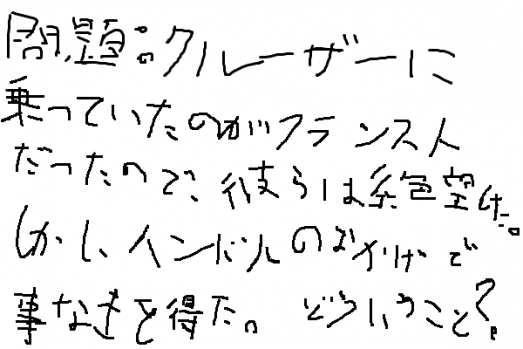 問題:クルーザーに
乗っていたのがフランス人
だったので、彼らは絶望した。
しかし、ハンドルのおかげで
事なきを得た。どういうこと?